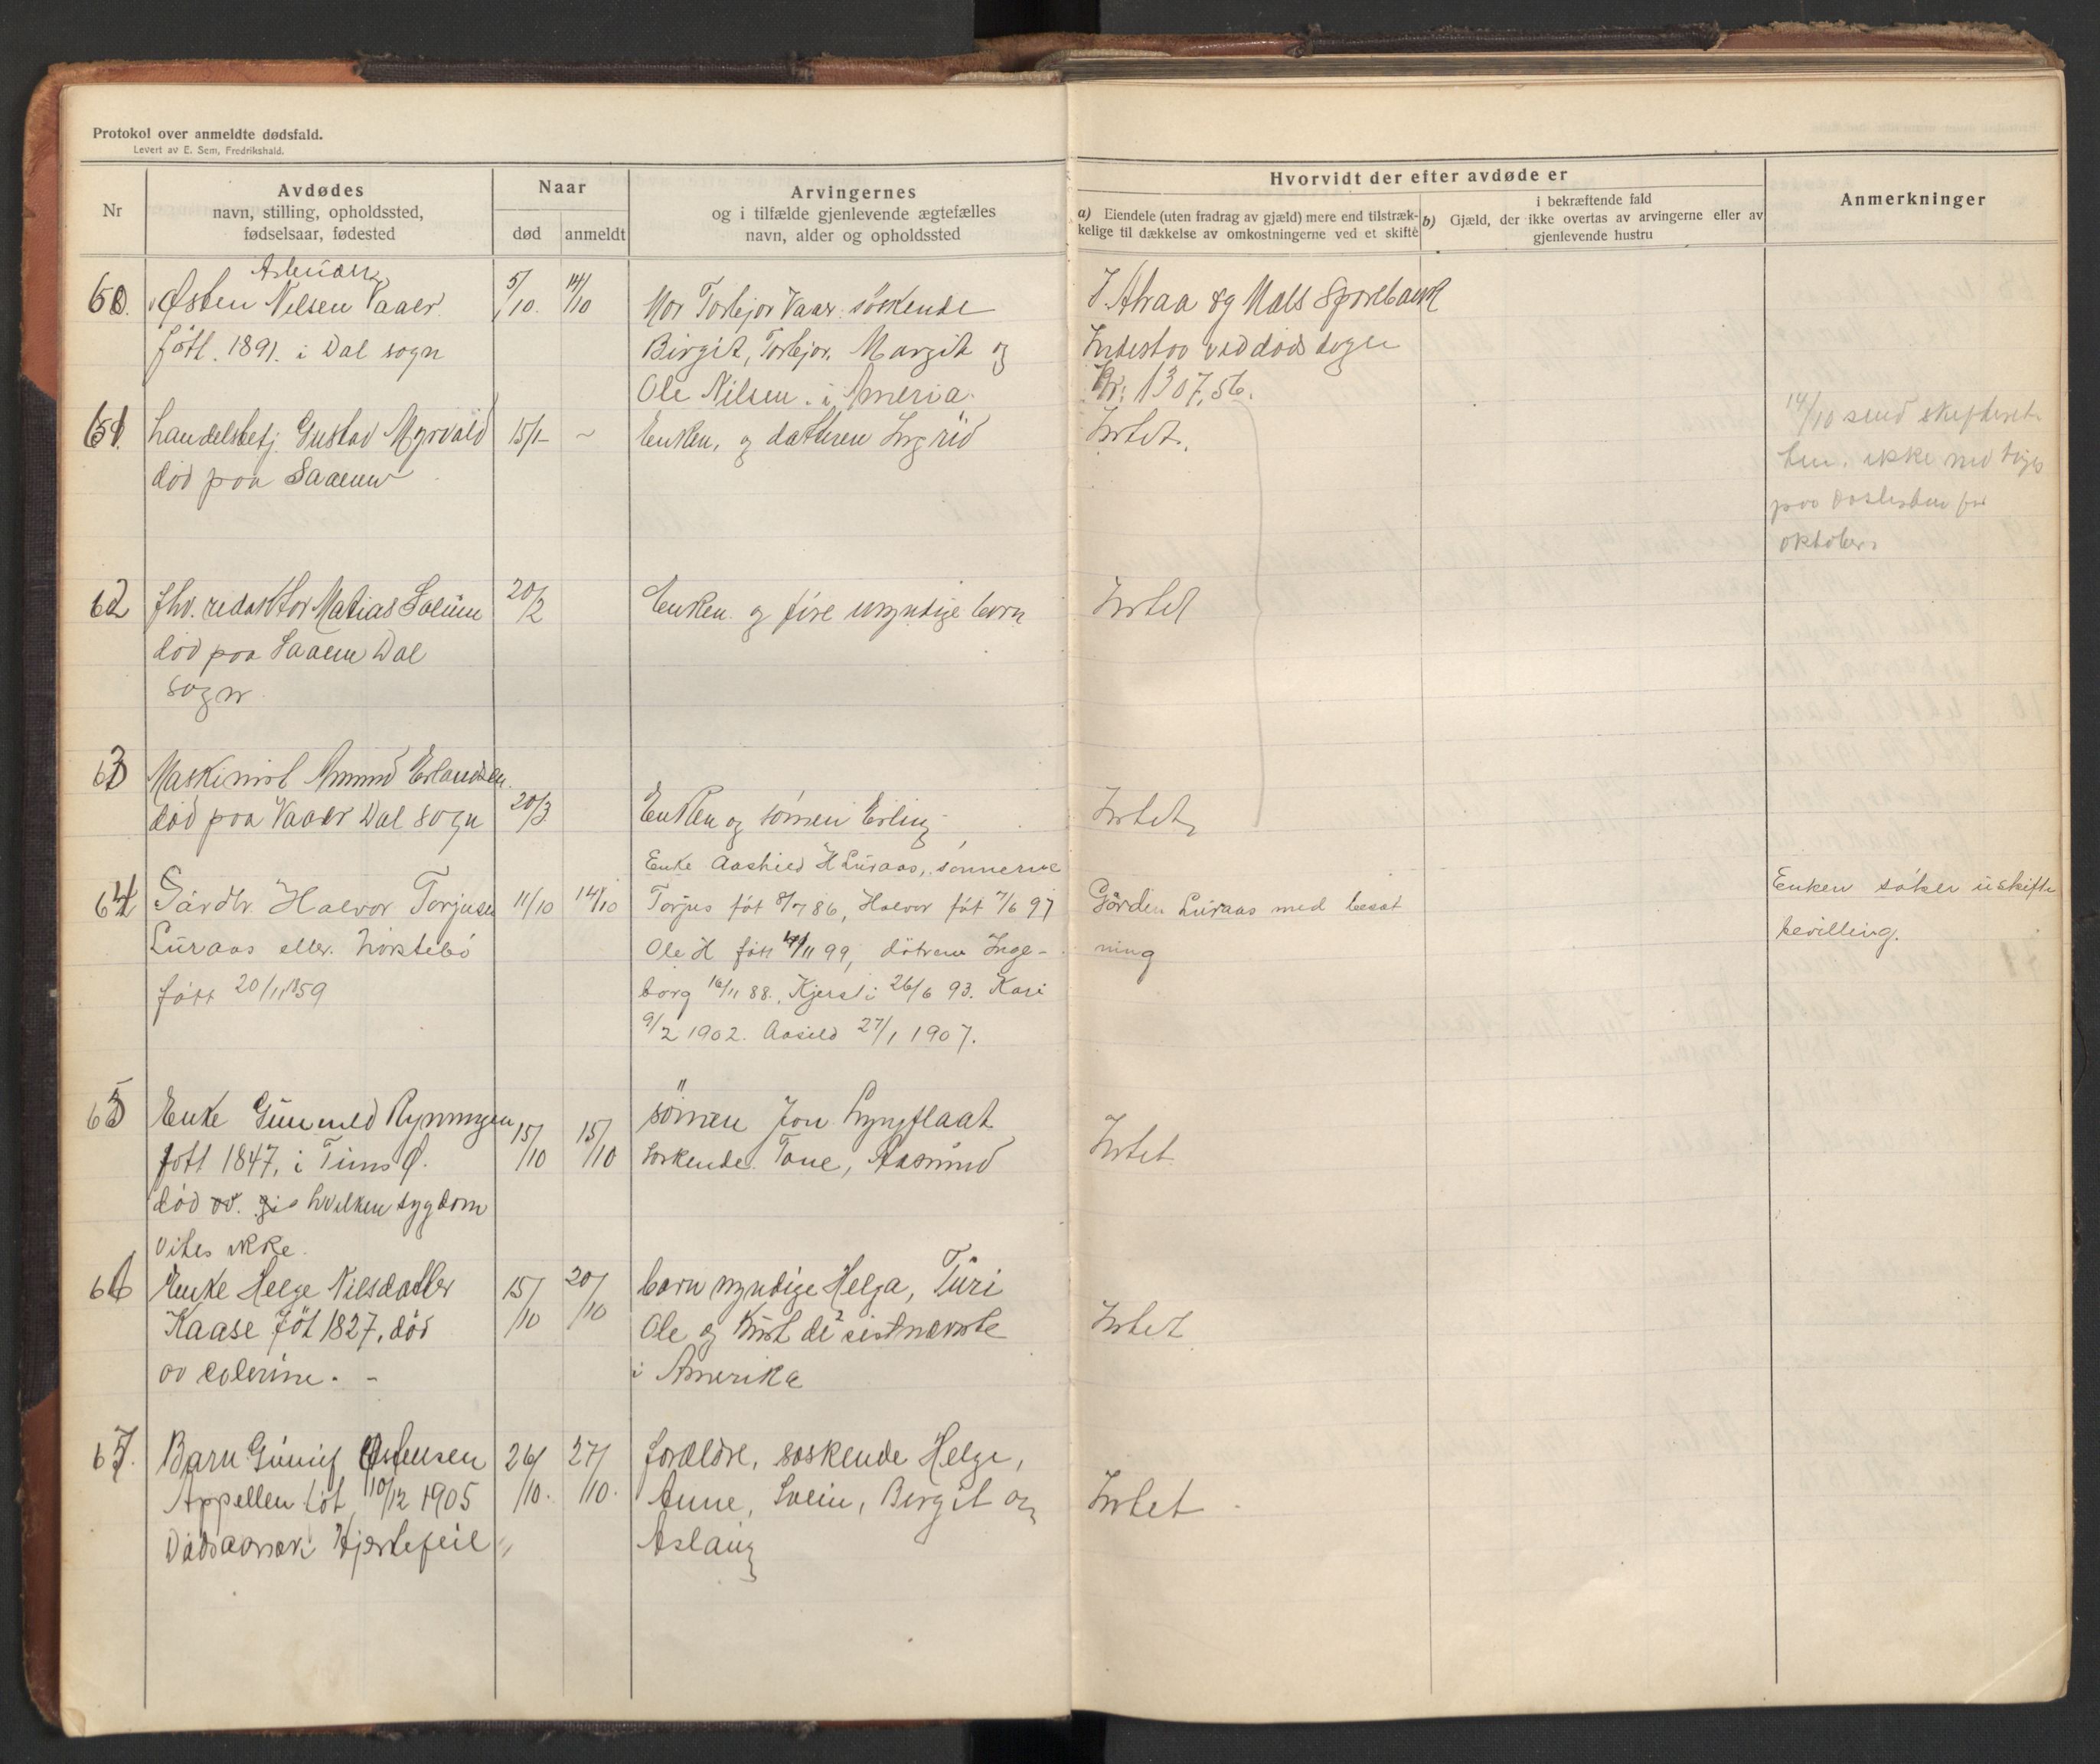 Protokol over anmeldte dødsfald.
Levert av E. Sem, Fredrikshald.
Nr
Avdødes
navn, stilling, opholdssted,
fødselsaar, fødested
Naar
død
anmeldt
Arvingernes
og i tilfælde gjenlevende ægtefælles
navn, alder og opholdssted
Hvorvidt der efter avdøde er
a) Eiendele (uten fradrag av gjæld) mere end tilstræk-
kelige til dækkelse av omkostningerne ved et skifte
i bekræftende fald
b) Gjæld, der ikke overtas av arvingerne eller av
gjenlevende hustru
Anmerkninger
60. Østen Nilsen Vaaer 5/10. 14/10 Mor Torbjor Vaaer. søskende
født. 1891. i Dal sogn Birgit, Torbjor, Margit og
Ole Nilsen. i Ameria.
I Atraa og Mæls Sparebank
Indestaa ved døds dagen
Kr. 1307,56.
61. handelsbetj. Gustav Myrvold 15/1 ~ Enken, og datteren Ingrid Intet.
død paa Saaem
14/10 send skifteret
ten. ikke med
paa for
oktober
62 fhv. redaktør Matias Solum 20/2 Enken og fire umyndige børn Intet
død paa Saaem Dal
sogn
63 Maskinist Amund Erlandsen
død paa Vaaer Dal sogn 20/3 Enken og sønnen Erling Intet
64 Gårdbr. Halvor Torjusen 11/10 14/10 Enke Aashild H Luraas, sønnerne
Torjus føt 8/7 86, Halvor føt 7/6 97
Luraas eller. Nørstebø Ole H født 4/11 99, døtrene Inge-
født 20/11 1859 borg 16/11 88. Kjersti 26/6 93. Kari
9/2 1902. Aasild 27/1 1907.
Gården Luraas med besæt
ning
Enken søker uskifte
bevilling.
65 Enke Gunnild Rynningen 15/10 15/10 sønnen Jon Lyngflaat
født 1847, i Tinns Q. søskende. Tone, Aasmund Intet
død av. hvilken sygdom
vites ikke.
66 Enke Helge Nilsdatter 15/10 20/10 barn myndige Helga, Turi
Kaase føt 1827, død Ole og de 2 sistnævnte Intet
av colerine. - i Amerika
67. Barn Gunnif Østensen 26/10. 27/10. forældre, søskende Helge,
Appellen føt 10/12 1905 Anne, Svein, Birgit og Intet
Dødsaarsak: Hjertefeil Aslaug